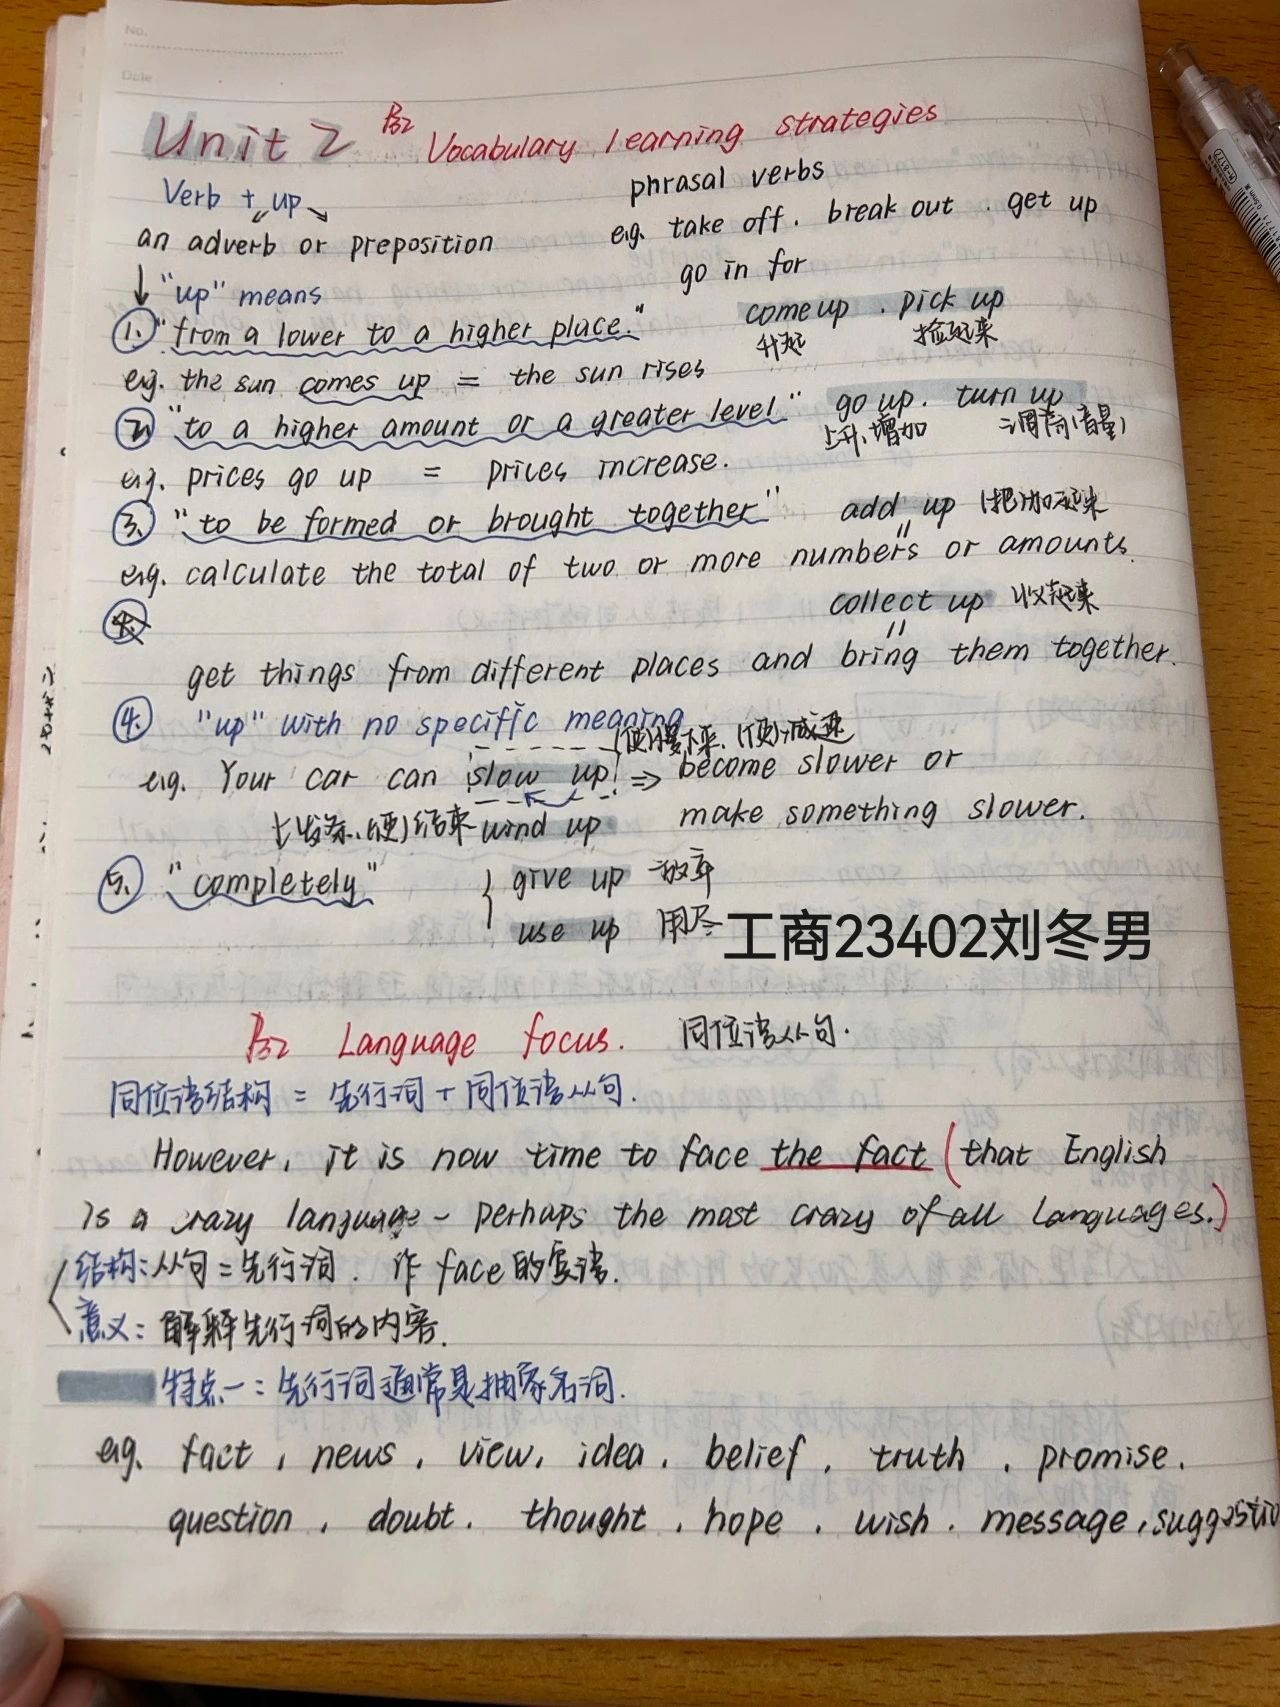 No.
Date
Unit 2 P32 Vocabulary learning strategies
Verb + up
phrasal verbs
an adverb or preposition
e.g. take off. break out. get up
go in for
"up" means
come up. pick up
升起 捡起来
1. "from a lower to a higher place."
e.g. the sun comes up = the sun rises
2. "to a higher amount or a greater level" go up. turn up
上升、增加 调高(音量)
e.g. prices go up = prices increase.
3. "to be formed or brought together" add up (把)加起来
=
e.g. calculate the total of two or more numbers or amounts.
4. collect up 收起来
=
get things from different places and bring them together.
4. "up" with no specific meaning
(使)慢下来、(使)减速
e.g. Your car can slow up ⇒ become slower or
make something slower.
上发条、(使)结束 wind up
5. "completely" give up 放弃
use up 用尽
工商23402刘冬男
P32 Language focus. 同位语从句.
同位语结构 = 先行词 + 同位语从句.
However, it is now time to face the fact (that English
is a crazy language - perhaps the most crazy of all languages.)
结构:从句=先行词. 作 face 的宾语.
意义: 解释先行词的内容.
特点一: 先行词通常是抽象名词.
e.g. fact, news, view, idea, belief, truth, promise.
question, doubt, thought, hope, wish. message, suggestio